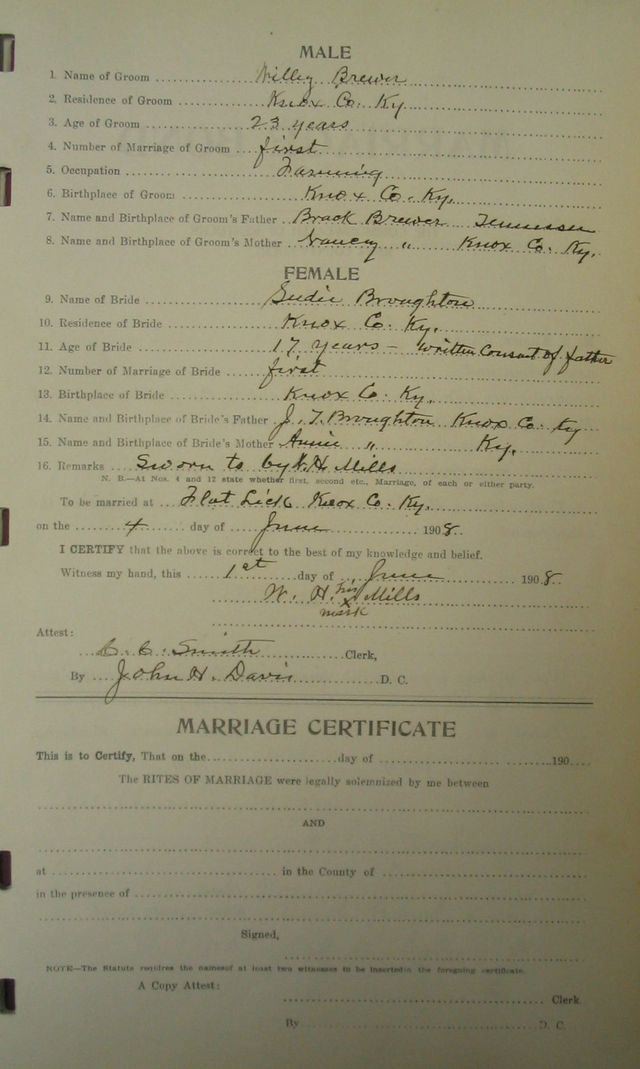 MALE
1. Name of Groom Willey Brewer
2. Residence of Groom Knox Co. Ky
3. Age of Groom 23 years
4. Number of Marriage of Groom first
5. Occupation Farming
6. Birthplace of Groom Knox Co. Ky.
7. Name and Birthplace of Groom's Father Brack Brewer Tennessee
8. Name and Birthplace of Groom's Mother Nancy " Knox Co. Ky.
FEMALE
9. Name of Bride Sudie Broughton
10. Residence of Bride Knox Co. Ky.
11. Age of Bride 17 years - written Consent of father
12. Number of Marriage of Bride first
13. Birthplace of Bride Knox Co. Ky.
14. Name and Birthplace of Bride's Father J. T. Broughton Knox Co. Ky
15. Name and Birthplace of Bride's Mother Annie " Ky.
16. Remarks Sworn to by W. H. Mills
N. B.—At Nos. 4 and 12 state whether first, second etc., Marriage, of each or either party.
To be married at Flat Lick Knox Co. Ky.
on the 4 day of June 1908.
I CERTIFY that the above is correct to the best of my knowledge and belief.
Witness my hand, this 1st day of June 1908.
W. H. his x Mills
mark
Attest:
C. C. Smith Clerk,
By John H. Davis D. C.
MARRIAGE CERTIFICATE
This is to Certify, That on the day of 190
The RITES OF MARRIAGE were legally solemnized by me between
AND
at in the County of
in the presence of
Signed,
NOTE—The Statute requires the namesof at least two witnesses to be inserted in the foregoing certificate.
A Copy Attest:
Clerk.
By D. C.